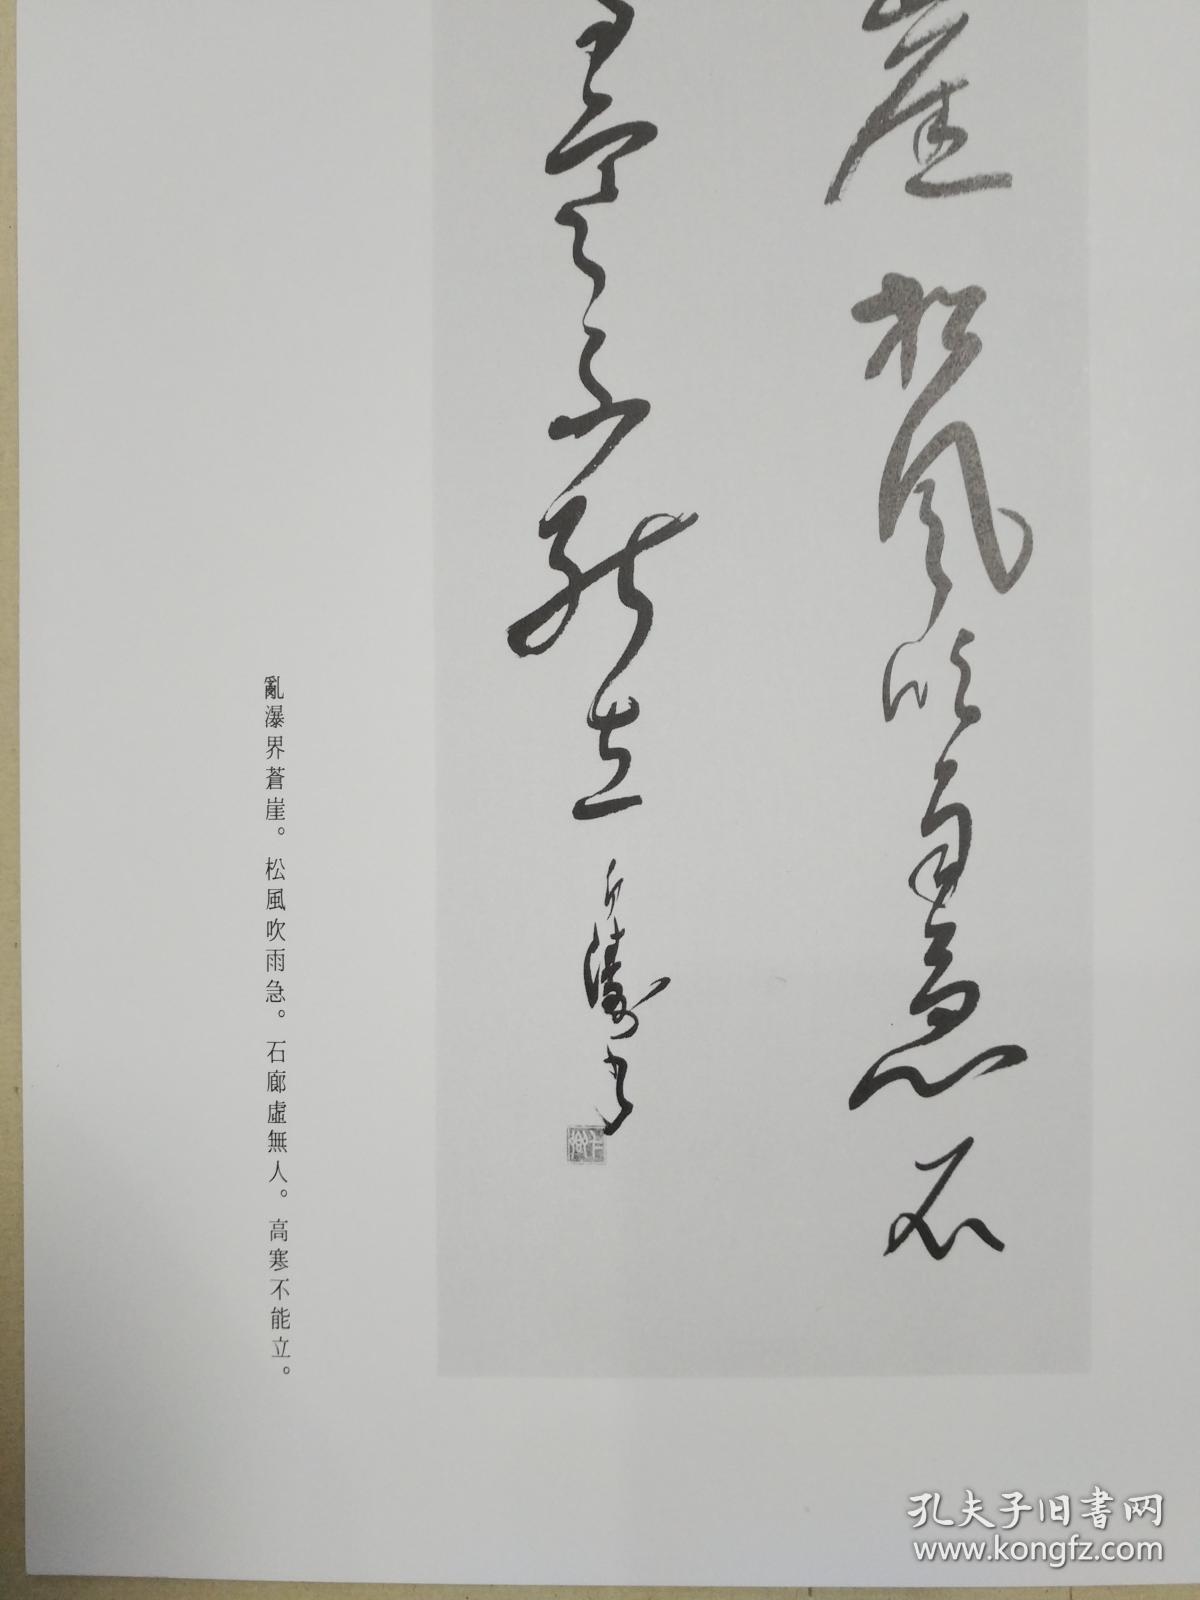 崖松風吹雨急石
高寒不能立
亂瀑界蒼崖。松風吹雨急。石廊虛無人。高寒不能立。
孔夫子旧书网
www.kongfz.com